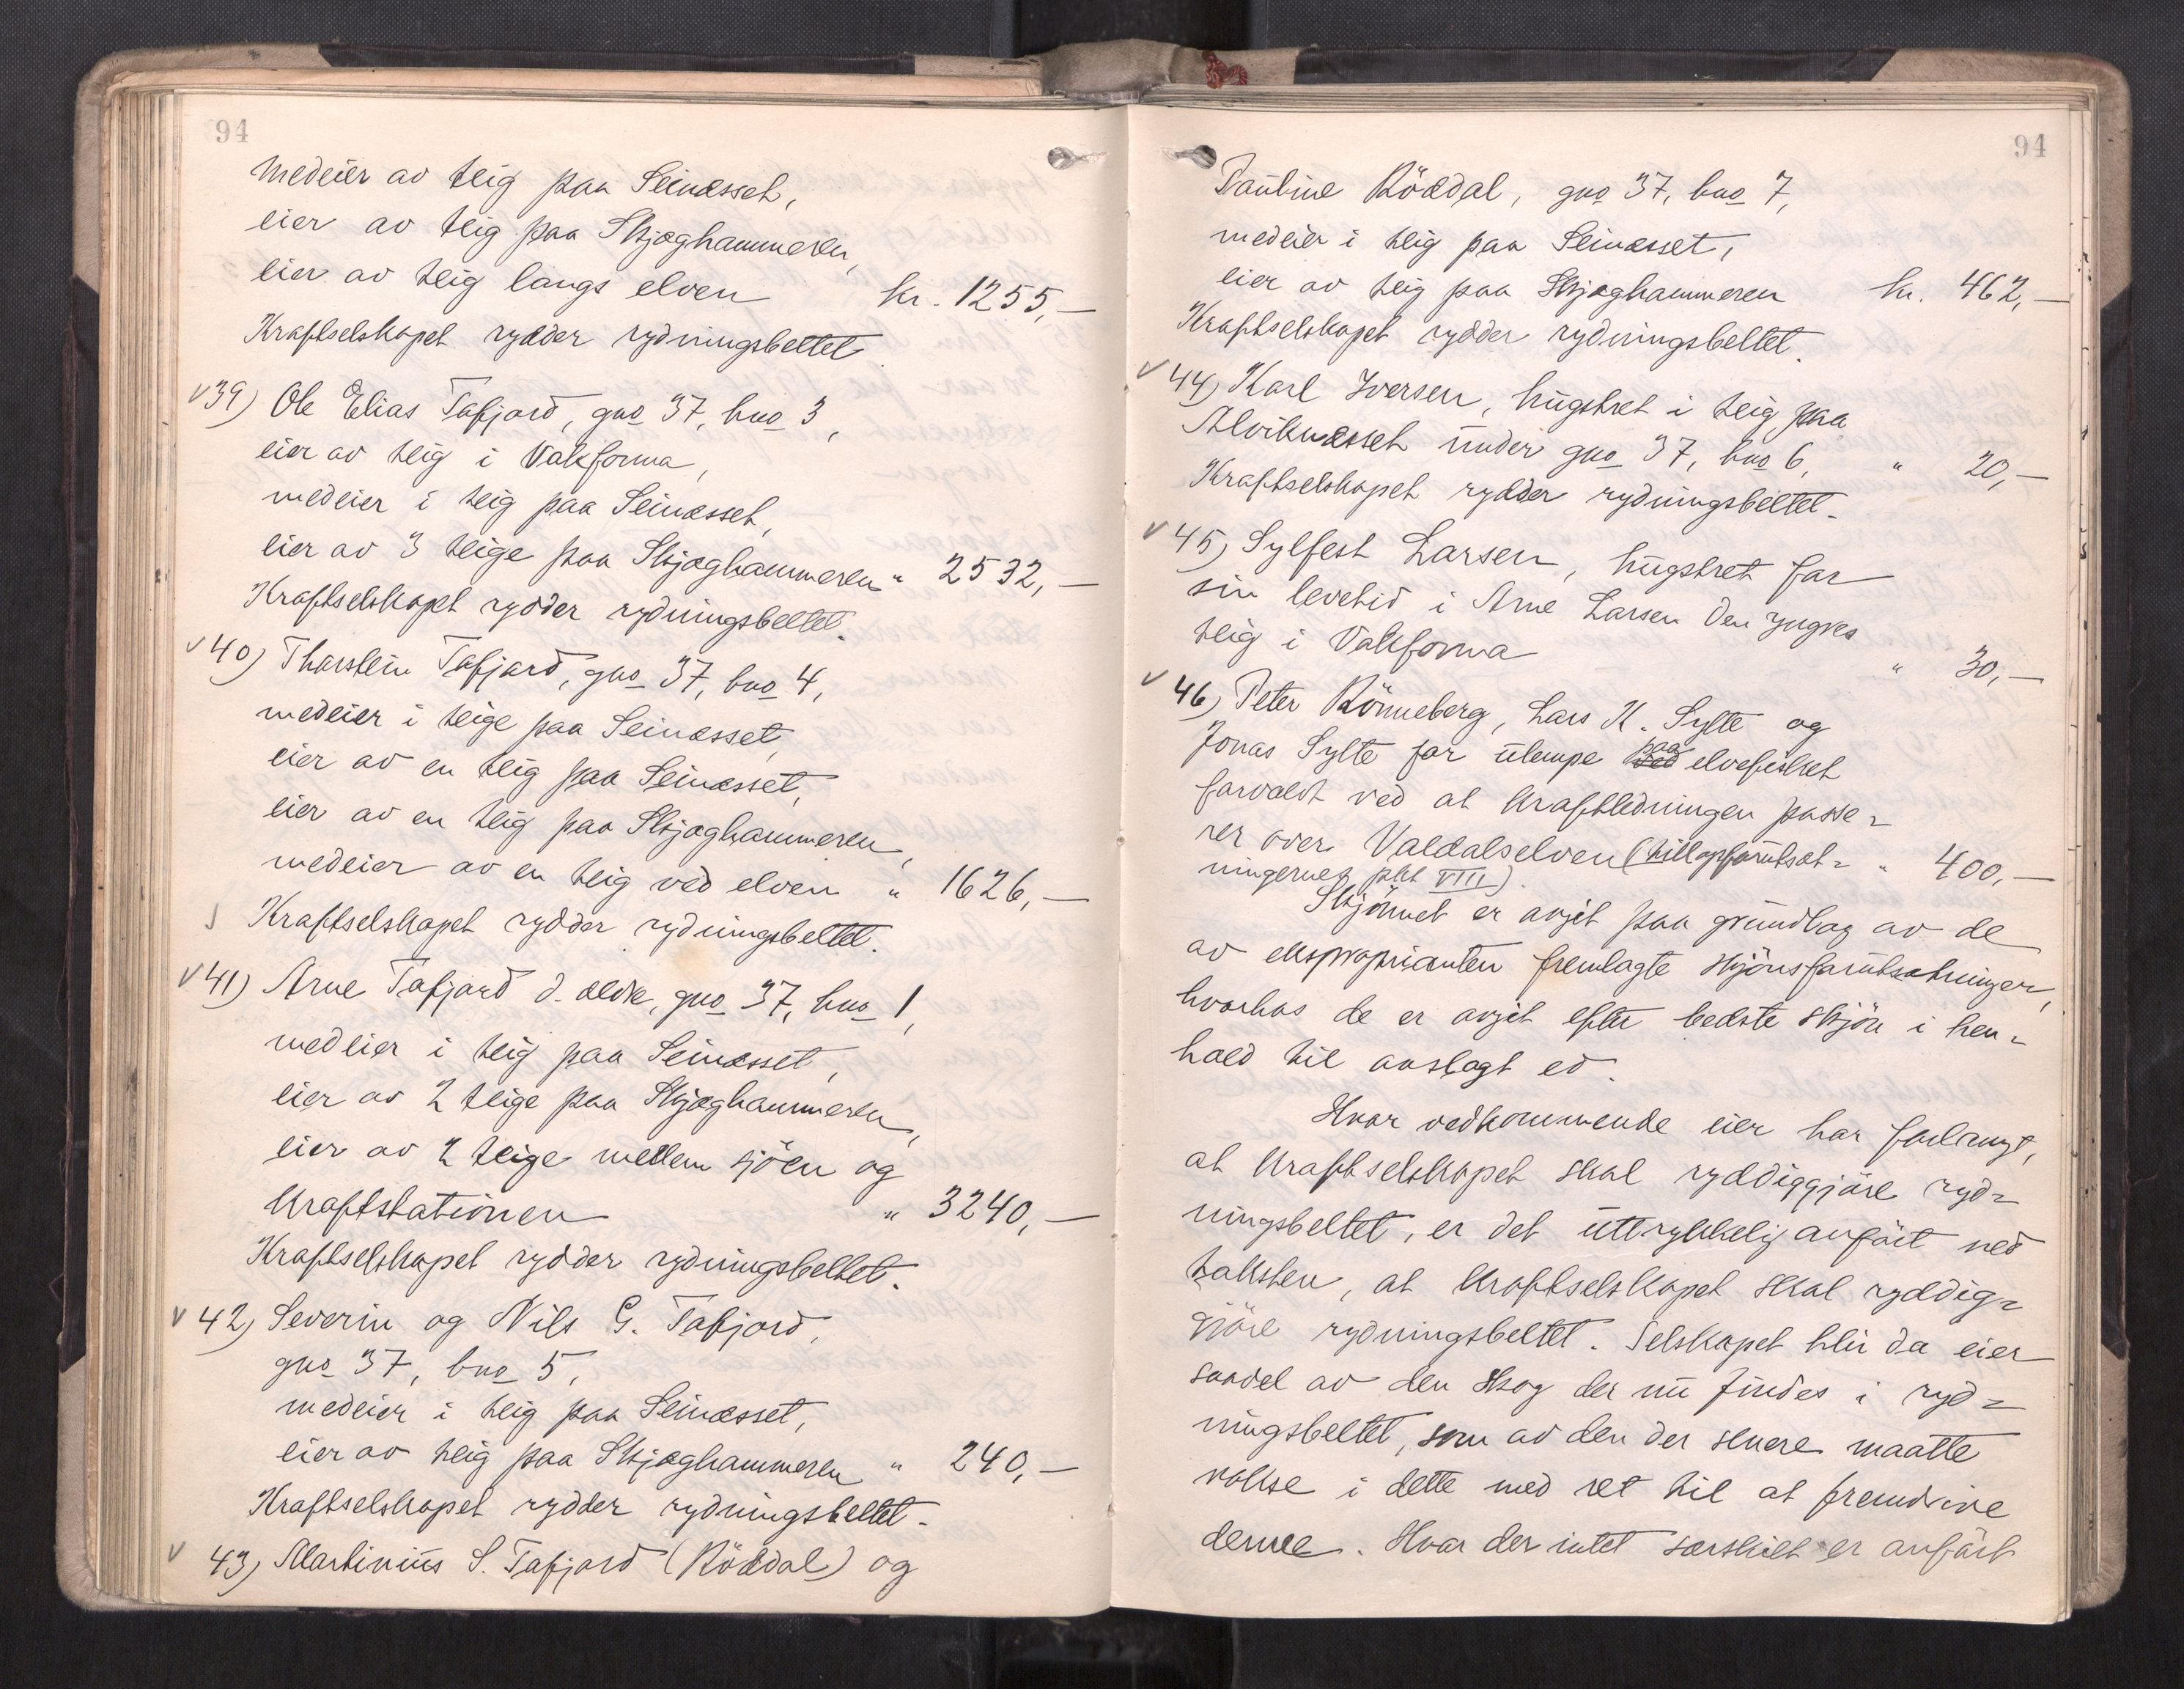 94
medeier av teig paa Seinæsset,
eier av teig paa Skjæghammeren,
eier av teig langs elven kr. 1255,—
Kraftselskapet rydder rydningsbeltet.
v 39) Ole Elias Tafjord, gno 37, bno 3,
eier av teig i Vakforma,
medeier i teig paa Seinæsset,
eier av 3 teige paa Skjæghammeren " 2532,—
Kraftselskapet rydder rydningsbeltet.
v 40) Thorstein Tafjord, gno 37, bno 4,
medeier i teige paa Seinæsset,
eier av en teig paa Seinæsset,
eier av en teig paa Skjæghammeren,
medeier av en teig ved elven " 1626,—
Kraftselskapet rydder rydningsbeltet.
v 41) Arne Tafjord d. ældre, gno 37, bno 1,
medeier i teig paa Seinæsset,
eier av 2 teige paa Skjæghammeren,
eier av 2 teige mellem sjöen og
kraftstationen " 3240,—
Kraftselskapet rydder rydningsbeltet.
v 42) Severin og Nils G. Tafjord,
gno 37, bno 5,
medeier i teig paa Seinæsset,
eier av teig paa Skjæghammeren " 240,—
Kraftselskapet rydder rydningsbeltet.
v 43) Martinius S. Tafjord (Röddal) og
94
Pauline Röddal, gno 37, bno 7,
medeier i teig paa Seinæsset,
eier av teig paa Skjæghammeren kr. 462,—
Kraftselskapet rydder rydningsbeltet.
v 44) Karl Iversen, hugstret i teig paa
Alviknæsset under gno 37, bno 6, " 20,—
Kraftselskapet rydder rydningsbeltet.
v 45) Sylfest Larsen, hugstret for
sin levetid i Arne Larsen den yngres
teig i Vakforma " 30,—
v 46) Peter Rönneberg, Lars K. Sylte og
Jonas Sylte for ulempe ved paa elvefisket
forvoldt ved at kraftledningen passe-
rer over Valdalselven (tillægsforutsæt- " 400,—
ningernes pkt VIII).
Skjönnet er avgit paa grundlag av de
av eksproprianten fremlagte skjönsforutsætninger,
hvorhos de er avgit efter bedste skjön i hen-
hold til avlagt ed.
Hvor vedkommende eier har forlangt,
at kraftselskapet skal ryddiggjöre ryd-
ningsbeltet, er det uttrykkelig anfört ved
taksten, at kraftselskapet skal ryddig-
gjöre rydningsbeltet. Selskapet blir da eier
saavel av den skog der nu findes i ryd-
ningsbeltet, som av den der senere maatte
vokse i dette med ret til at fremdrive
denne. Hvor der intet særskilt er anfört